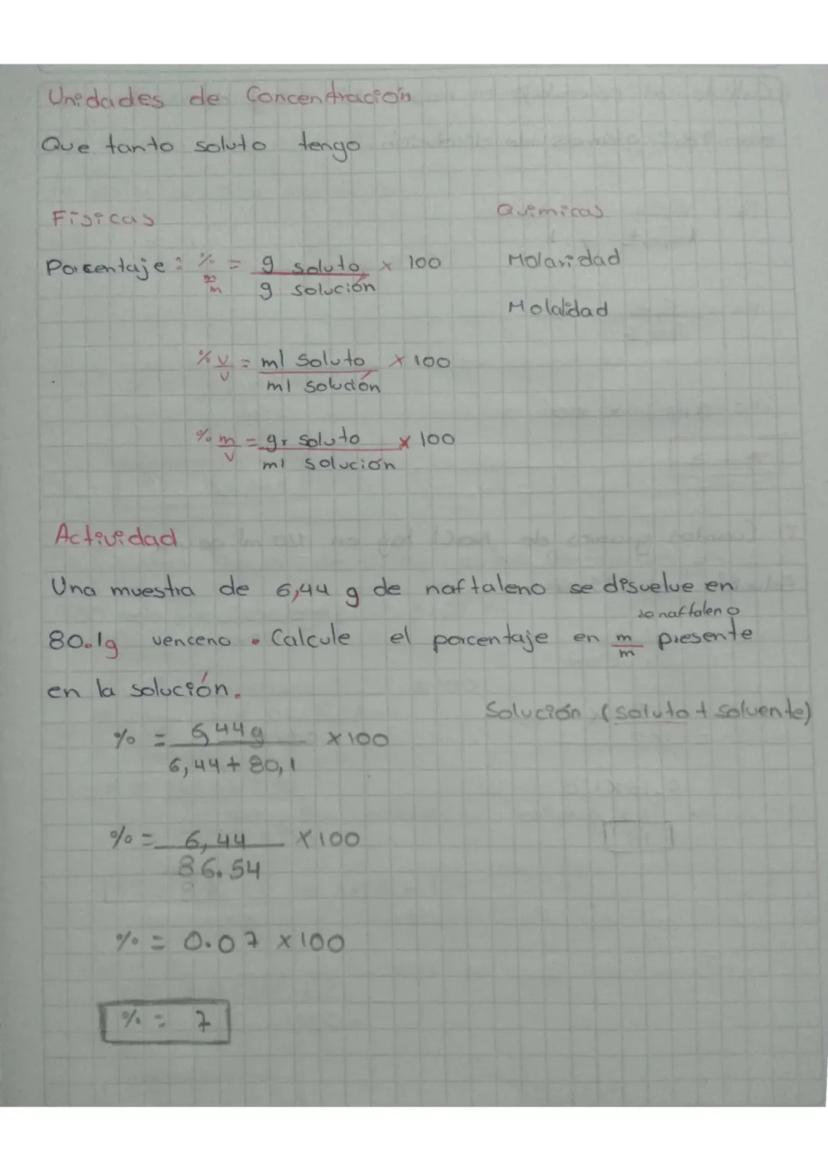 Unidades de Concentración
Que tanto soluto tengo
Físicas
Químicas
Porcentaje: % m/m = g soluto / g solución x 100
Molaridad
Molalidad
% v/v = ml soluto / ml solución x 100
% m/v = gr soluto / ml solución x 100
Actividad
Una muestra de 6,44 g de naftaleno se disuelve en
80.1g venceno. Calcule el porcentaje en m/m naftaleno presente
en la solución.
Solución (soluto + solvente)
% = 6,44g / 6,44 + 80,1 x 100
% = 6,44 / 86.54 x 100
% = 0.07 x 100
% = 7